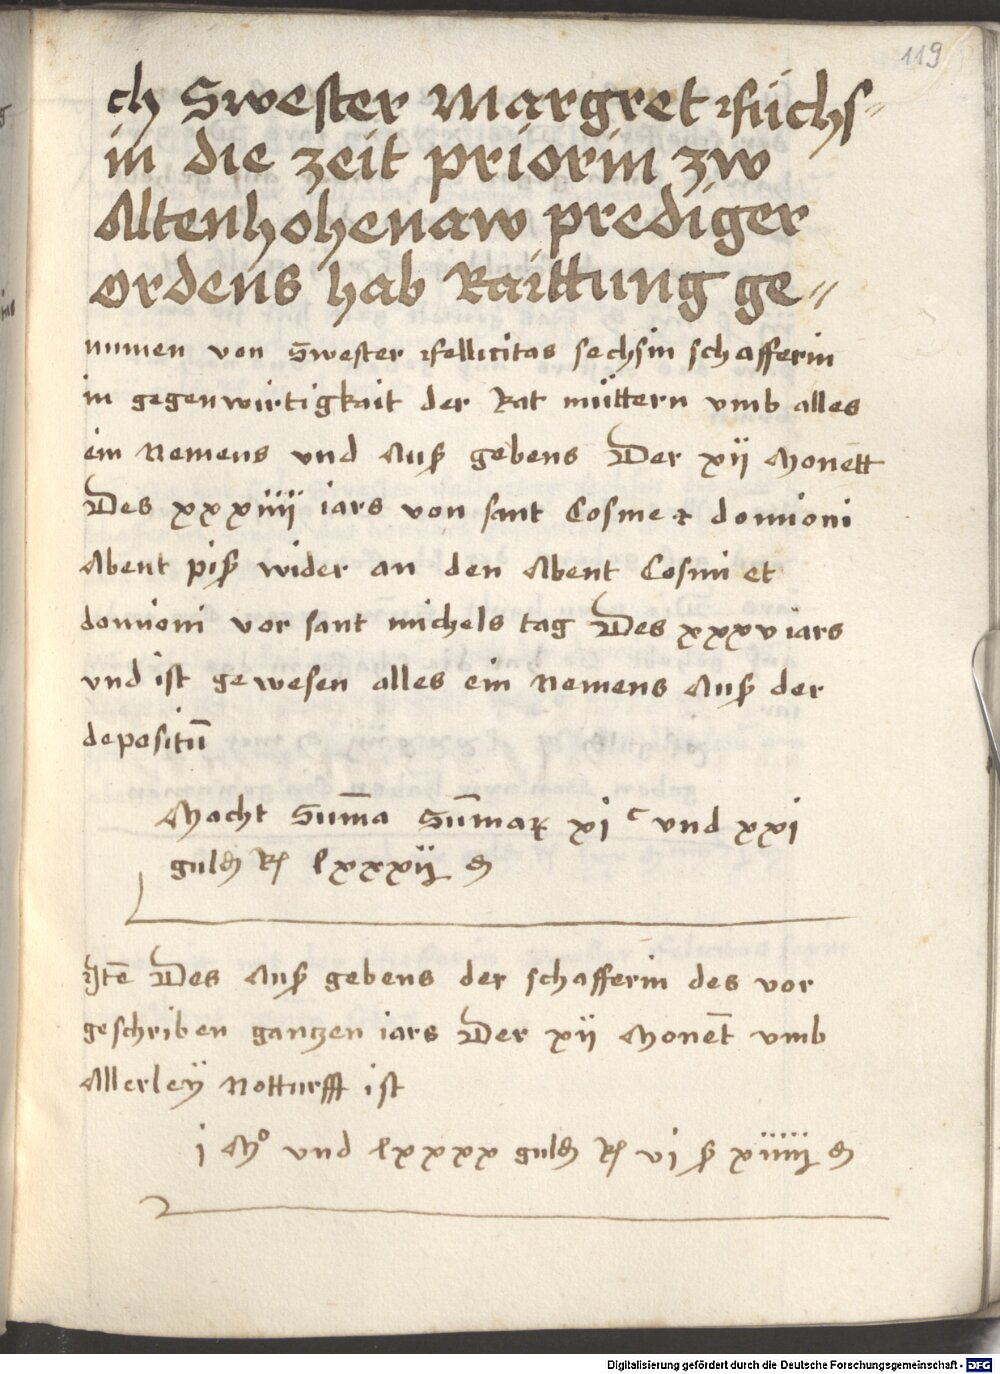 119
ch Swester Margret Füchs⸗
in die zeit priorin zw
Altenhohenaw prediger
ordens hab Raittung ge⸗
numen von Swester Fellicitas sechsin schafferin
in gegenwirtigkait der Rat müttern vmb alles
ein Nemens vnd Auß gebens Der xij Monett
Des xxxiiij iars von sant Cosme et domioni
Abent piß wider an den Abent Cosmi et
domioni vor sant michels tag Des xxxv iars
vnd ist gewesen alles ein Nemens Auß der
depositū
Macht Sum̄a Sum̄aꝝ xjᶜ vnd xxj
guldṅ Rh lxxxij ₰
Itē Des Auß gebens der schafferin des vor
geschriben gantzen iars Der xij Monet̄ vmb
Allerleÿ Notturfft ist
j Mᵒ vnd lxxxx guldṅ Rh vj ß xiiiij ₰
Digitalisierung gefördert durch die Deutsche Forschungsgemeinschaft - DFG